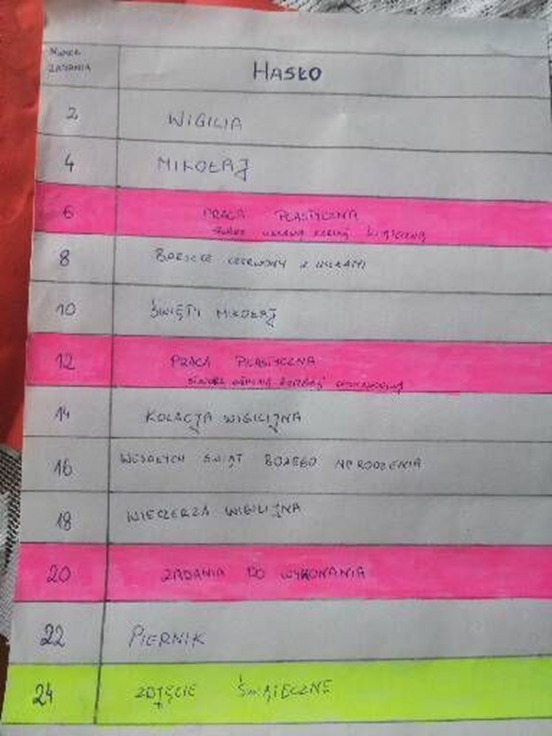 NUMER
ZADANIA
HASŁO
2 WIGILIA
4 MIKOŁAJ
6 PRACA PLASTYCZNA
8 BARSZCZ CZERWONY Z USZKAMI
10 ŚWIĘTY MIKOŁAJ
12 PRACA PLASTYCZNA
14 KOLACJA WIGILIJNA
16 WESOŁYCH ŚWIĄT BOŻEGO NARODZENIA
18 WIECZERZA WIGILIJNA
20 ZADANIA DO WYKONANIA
22 PIERNIK
24 ZDJĘCIE ŚWIĄTECZNE